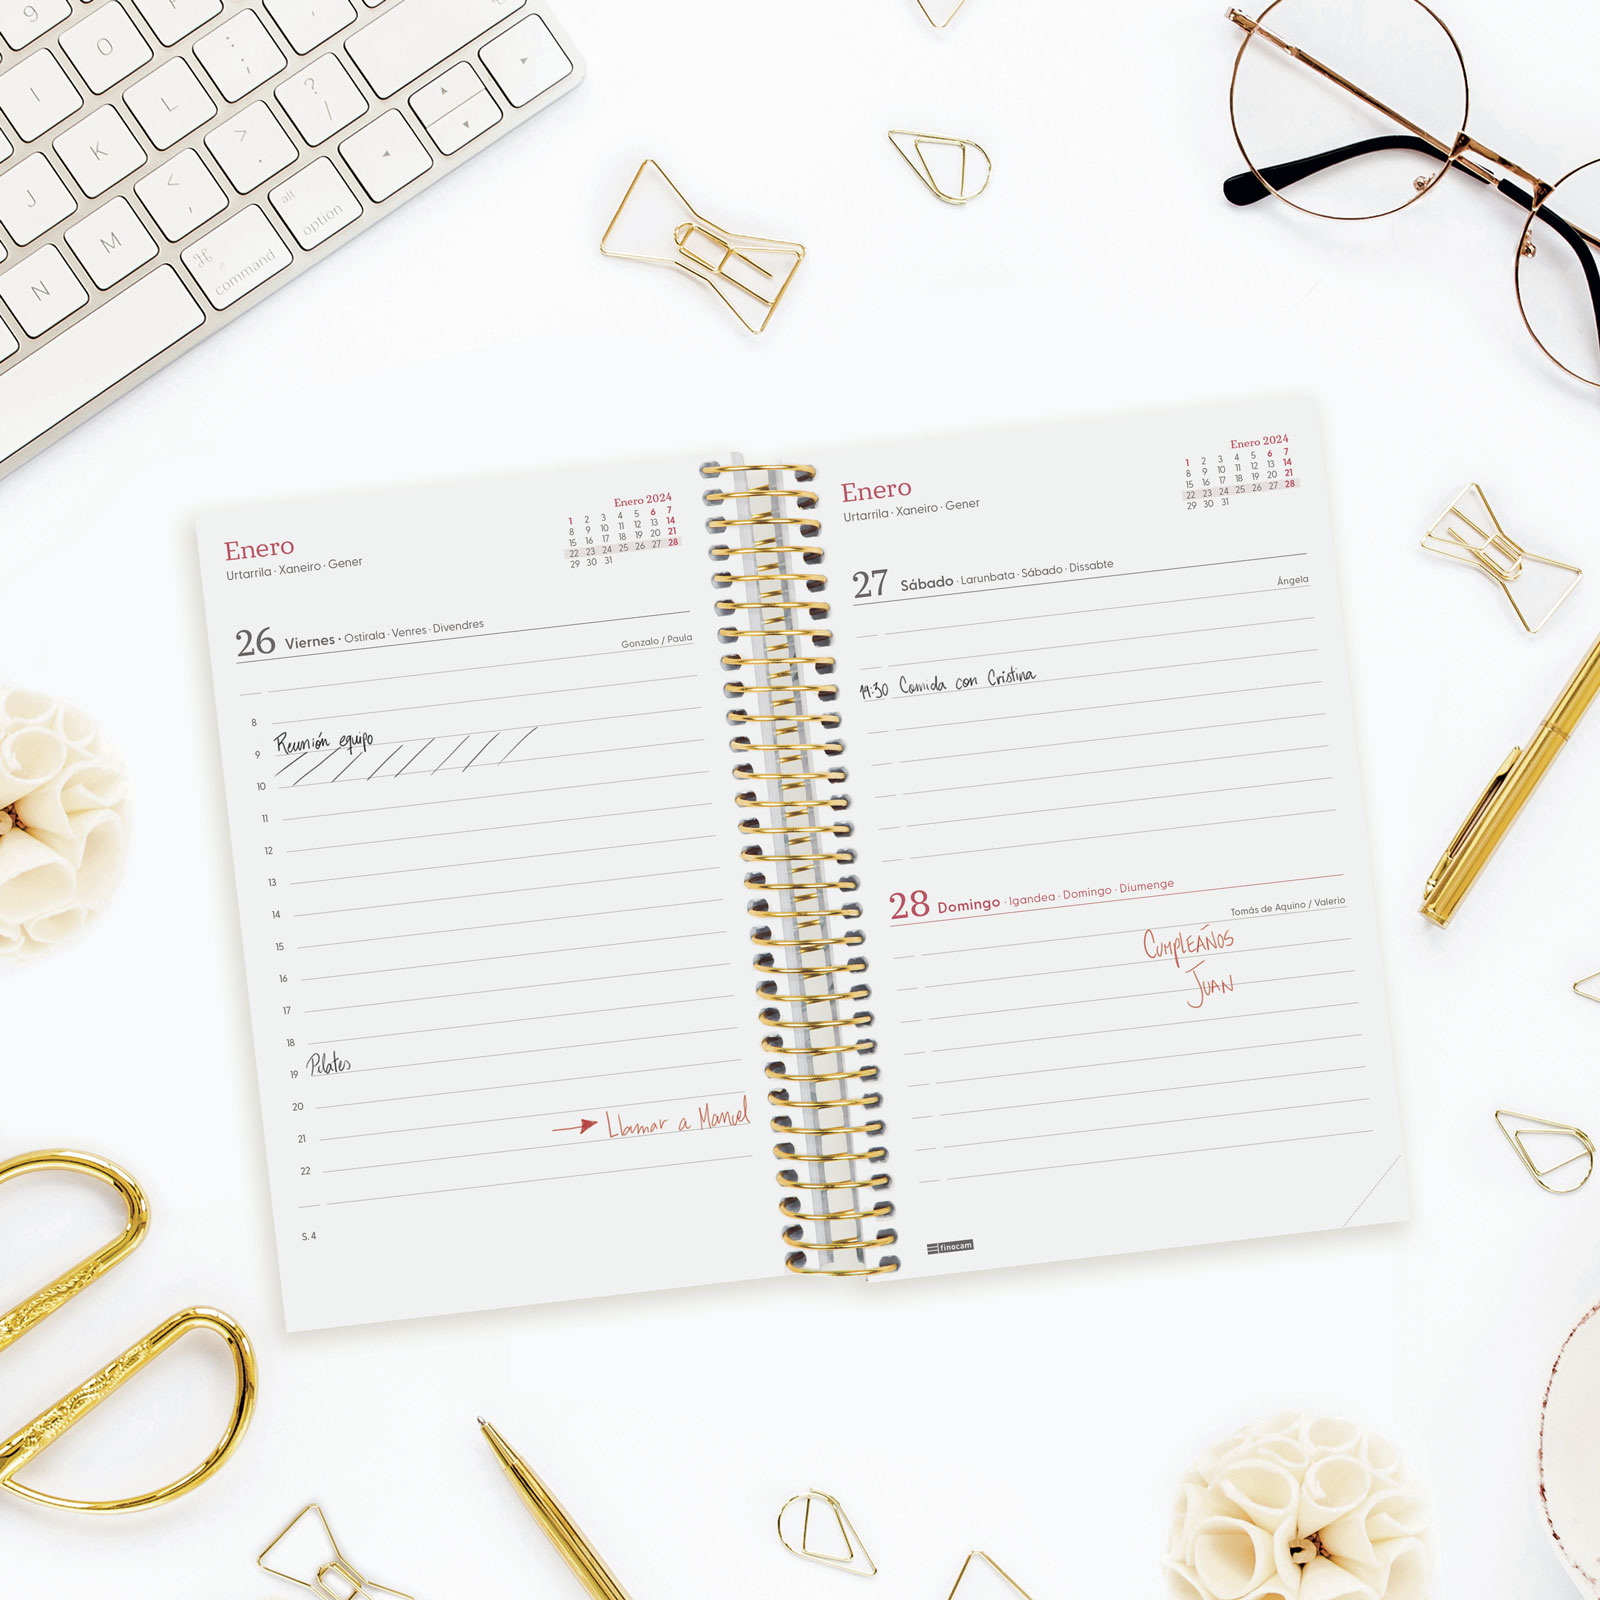 9
O
P
:
;
I
L
?
/
K
>
.
J
<
,
alt
option
M
⌘
command
N
Enero
Urtarrila · Xaneiro · Gener
Enero 2024
1 2 3 4 5 6 7
8 9 10 11 12 13 14
15 16 17 18 19 20 21
22 23 24 25 26 27 28
29 30 31
26 Viernes · Ostirala · Venres · Divendres
Gonzalo / Paula
8
9 Reunión equipo
10
11
12
13
14
15
16
17
18
19 Pilates
20
21 Llamar a Manuel
22
S. 4
Enero
Urtarrila · Xaneiro · Gener
Enero 2024
1 2 3 4 5 6 7
8 9 10 11 12 13 14
15 16 17 18 19 20 21
22 23 24 25 26 27 28
29 30 31
27 Sábado · Larunbata · Sábado · Dissabte
Ángela
14:30 Comida con Cristina
28 Domingo · Igandea · Domingo · Diumenge
Tomás de Aquino / Valerio
CUMPLEAÑOS
JUAN
finocam